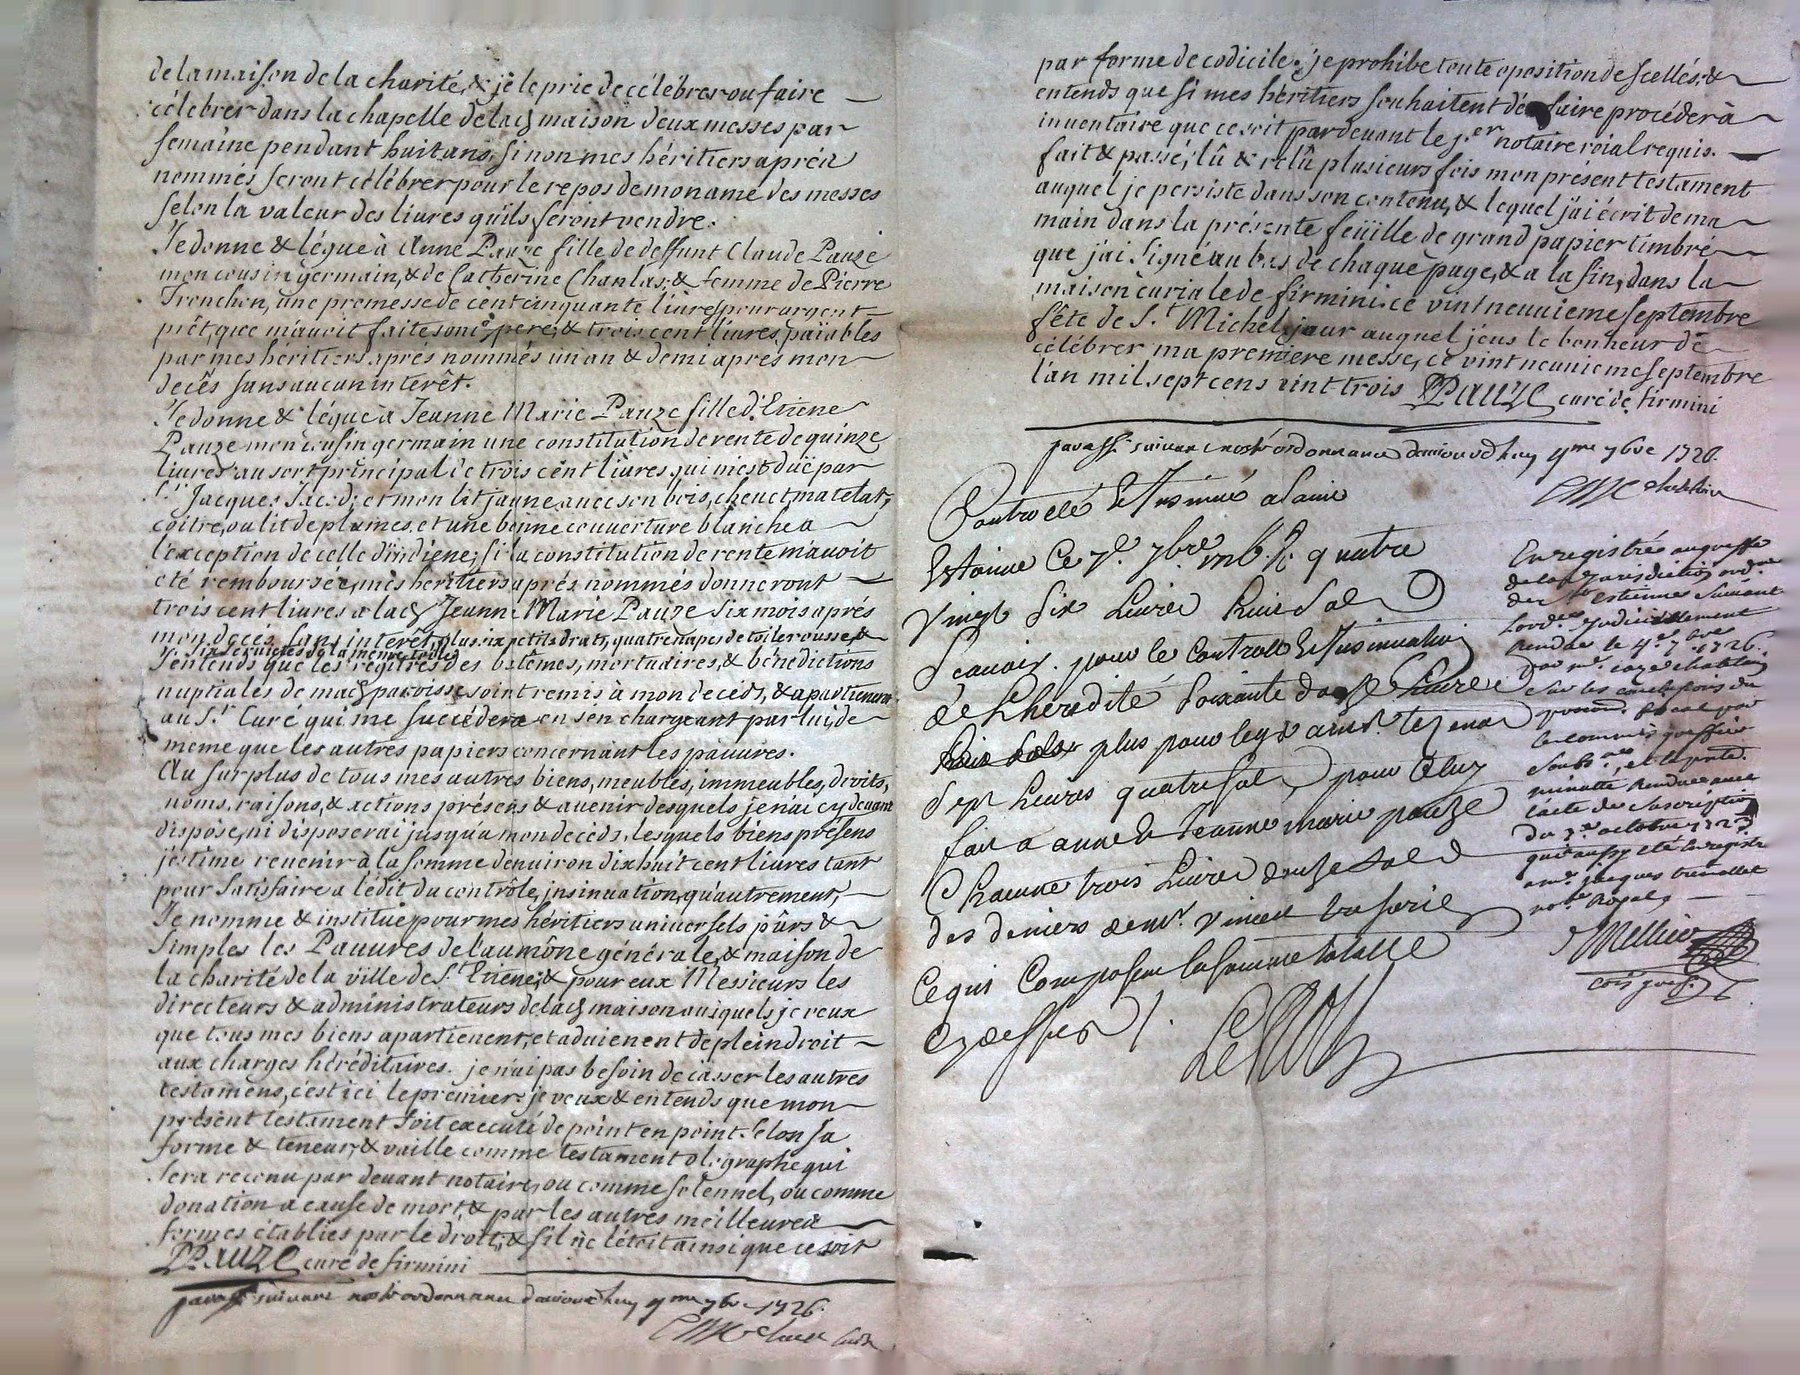 de la maison de la charité, & je le prie de célébrer ou faire
célébrer dans la chapelle de lad maison deux messes par
semaine pendant huit ans, sinon mes héritiers aprés
nommés feront célébrer pour le repos de mon ame des messes
selon la valeur des livres quils feront vendre.
Je donne & légue à Anne Pauze fille de deffunt Claude Pauze
mon cousin germain, & de Catherine Chanlas, & femme de Pierre
Trenchon, une promesse de cent cinquante livres pour argent
prêt, que m'avoit faite son pere, & trois cent livres, païables
par mes héritiers aprés nommés un an & demi aprés mon
decés sans aucun interêt.
Je donne & légue à Jeanne Marie Pauze fille d'Etiene
Pauze mon cousin germain une constitution de rente de quinze
livres au sort principal de trois cent livres qui m'est düe par
Sr. Jacques et mon lit jaune avec son bois, chevet matelat,
coitre, ou lit de plumes, et une bonne couverture blanche a
l'exception de celle d'indiene; si la constitution de rente m'avoit
eté remboursée, mes héritiers aprés nommés donneront
trois cent livres a lad Jeanne Marie Pauze six mois aprés
mon decés, sans interêt, plus six petits draps, quatre napes de toile rousse &
serviétes de la même toile
J'entends que les regitres des batêmes, mortuaires, & bénédictions
nuptiales de mad paroisse soint remis à mon decés, & apartienera
au Sr. Curé qui me succédera en s'en chargeant par lui, de
même que les autres papiers concernant les pauvres.
Au surplus de tous mes autres biens, meubles, immeubles, droits,
noms, raisons, & actions présens & avenir desquels je n'ai cy devant
disposé, ni disposerai jusqu'a mon decéds, lesquels biens présens
j'estime revenir à la somme d'environ dix huit cent livres tant
pour satisfaire a l'edit du contrôle, insinuation, qu'autrement,
Je nomme & institue pour mes héritiers universels pûrs &
simples les Pauvres de l'aumône générale, & maison de
la charité de la ville de St. Etiene; & pour eux Messieurs les
directeurs & administrateurs de lad maison ausquels je veux
que tous mes biens apartienent, et avienent de plein droit
aux charges héréditaires. je n'ai pas besoin de casser les autres
testamens, c'est ici le premier. je veux & entends que mon
présent testament soit executé de point en point selon sa
forme & teneur, & vaille comme testament olographe qui
sera reconu par devant notaire, ou comme solennel, ou comme
donation a cause de mort, & par les autres meilleures
formes établies par le droit, & s'il ne l'étoit ainsi que ce soit
PPauze curé de firmini
paraffé suivant nostre ordonnance d'aujourdhuy 9me 7bre 1726.
par forme de codicile. je prohibe toute oposition de scellés, &
entends que si mes héritiers souhaitent de faire procéder à
inventaire que ce soit par devant le 1.er notaire roial requis.
fait & passé, lû & relû plusieurs fois mon présent testament
auquel je persiste dans son contenu, & lequel j'ai écrit de ma
main dans la présente feüille de grand papier timbré
que j'ai signé au bas de chaque page, & a la fin, dans la
maison curiale de firmini ce vint neuvieme septembre
fête de St. Michel jour auquel j'eus le bonheur de
célébrer ma premiere messe, ce vint neuvieme septembre
l'an mil sept cens vint trois PPauze curé de firmini
paraffé suivant nostre ordonnance d'aujourdhuy 9me 7bre 1726.
Controllé et Insinué a Saint
Estienne Ce 7bre quatre
vingt six Livres huit sols
Scavoir pour le Controlle et Insinuation
de L'heredité soixante douze Livres
plus pour legs
Sept Livres quatre sols pour Celuy
fait a anne et Jeanne marie pauze
Chacune trois Livres douze sols
des deniers de mr. vincent
Ce qui Compose la somme totalle
Cy dessus
Enregistrée au greffe
de la Jurisdiction ordre
de St estienne suivant
Lordce Judiciellement
Rendue le 9e 7bre 1726.
par mr.
sur les conclusions du
procur. fiscal par
le commis greffier
soubne. et
minutte Rendue avec
l'acte de suscription
du octobre 1723
qui a aussy eté enregistré
mr. jacques
nore. Royal
Mellier